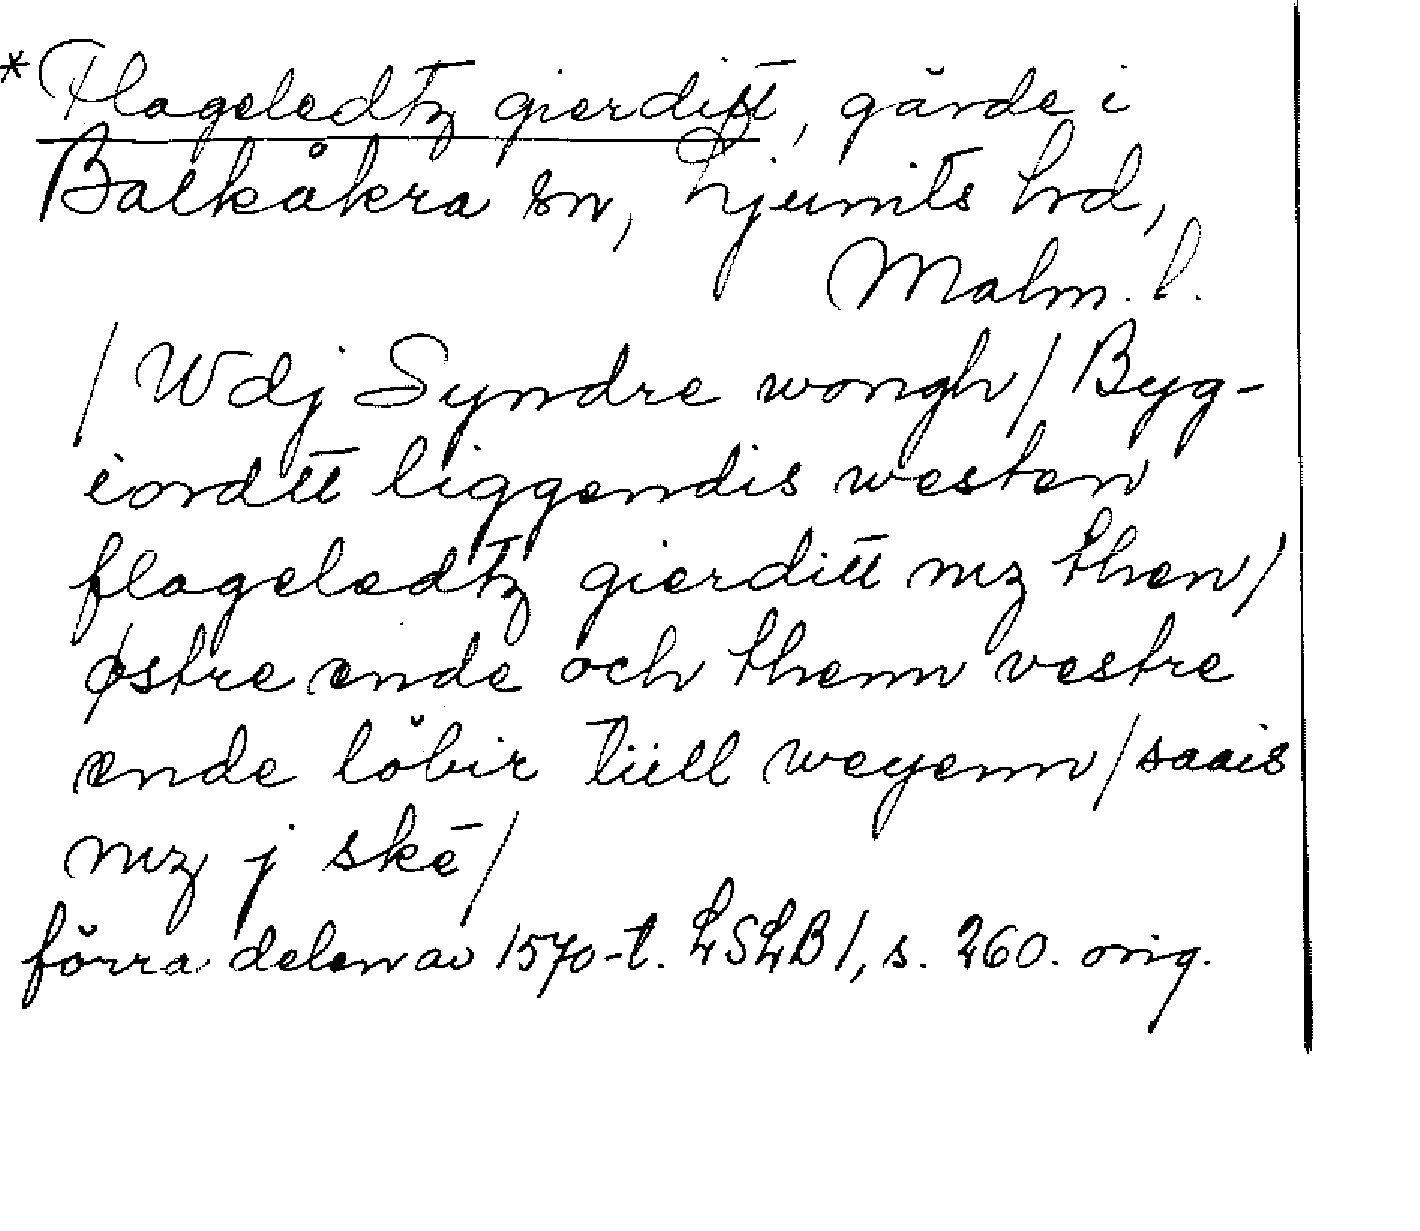 *Flageledtz gierditt, gärde i
Balkåkra sn, Ljunits hd,
Malm. l.
/Wdj Syndre wongh/ Byg-
iordtt liggendis westen
flageledtz gierditt mz then/
østre ende och thenn vestre
ende löbir tiill weyenn/saais
mz j skē/
förra delen av 1570-t. LSLB 1, s. 260. orig.